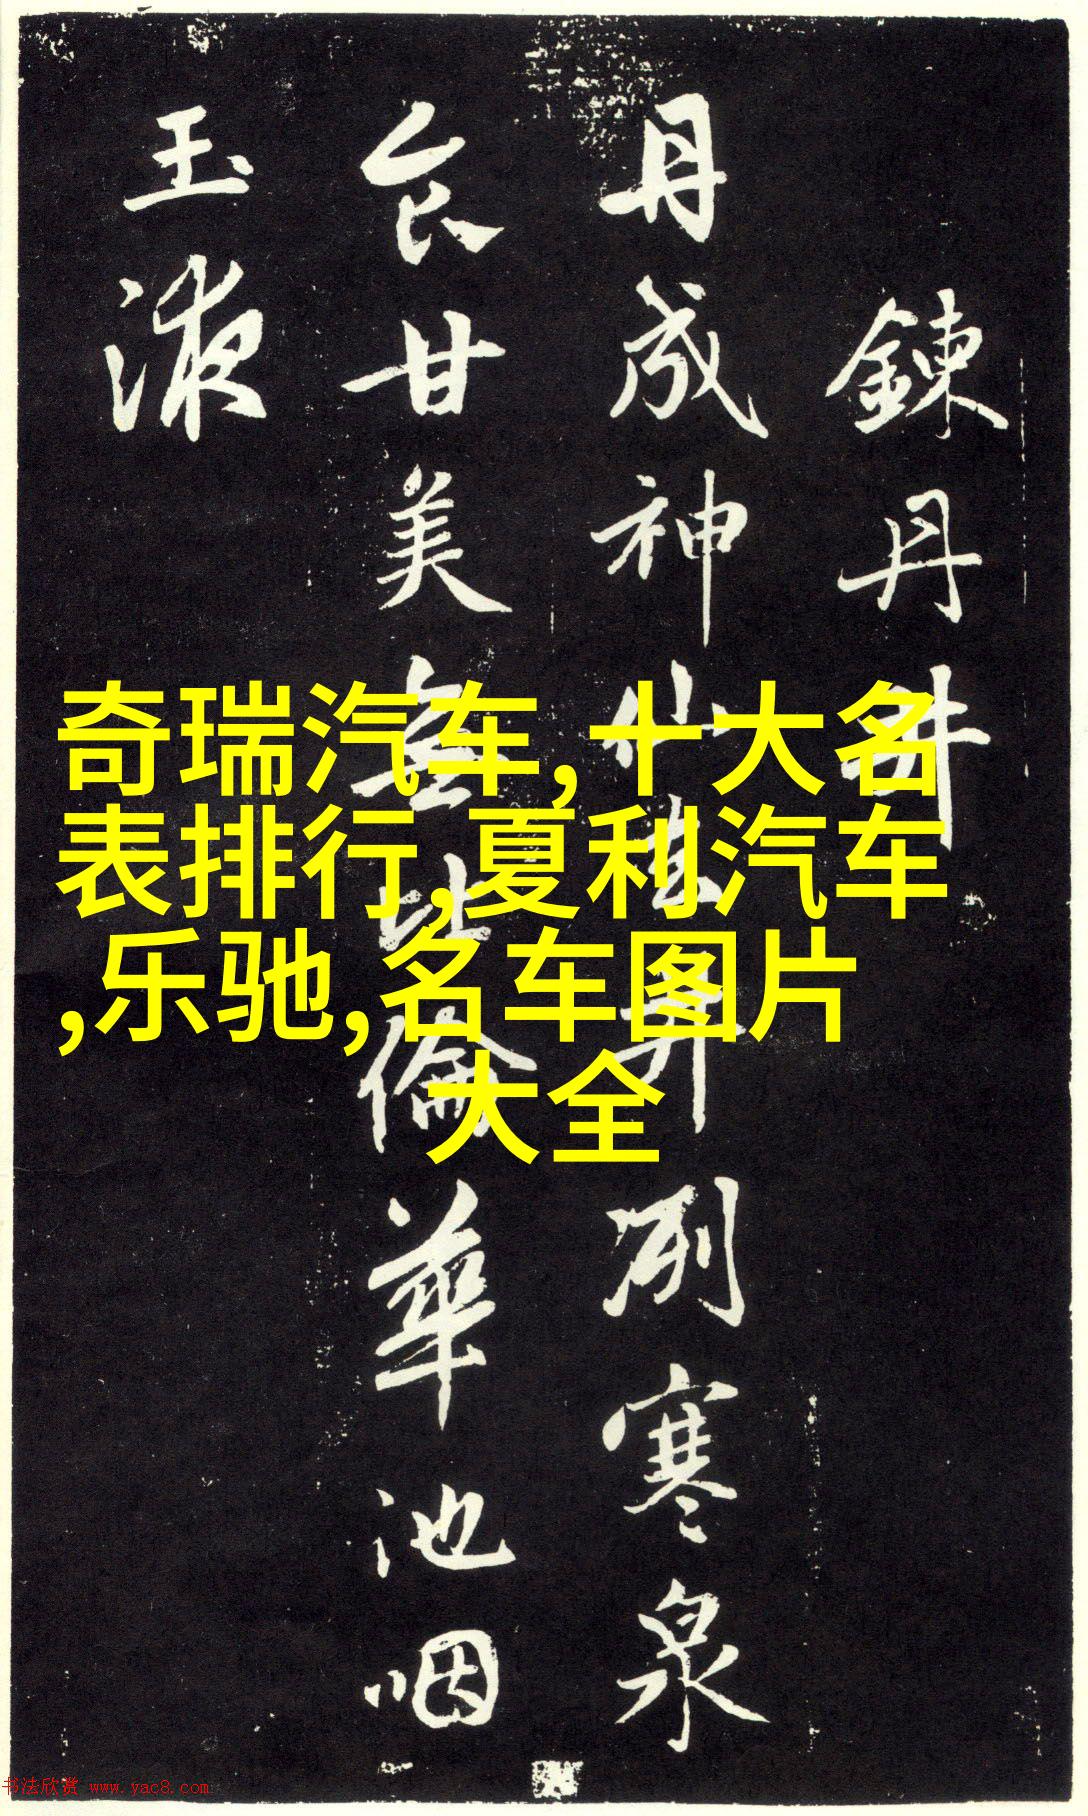 鍊丹井
丹成神仙去井冽寒泉
食甘美無比倫華池咽
玉液
奇瑞汽车,十大名
表排行,夏利汽车
,乐驰,名车图片
大全
书法欣赏 www.yac8.com